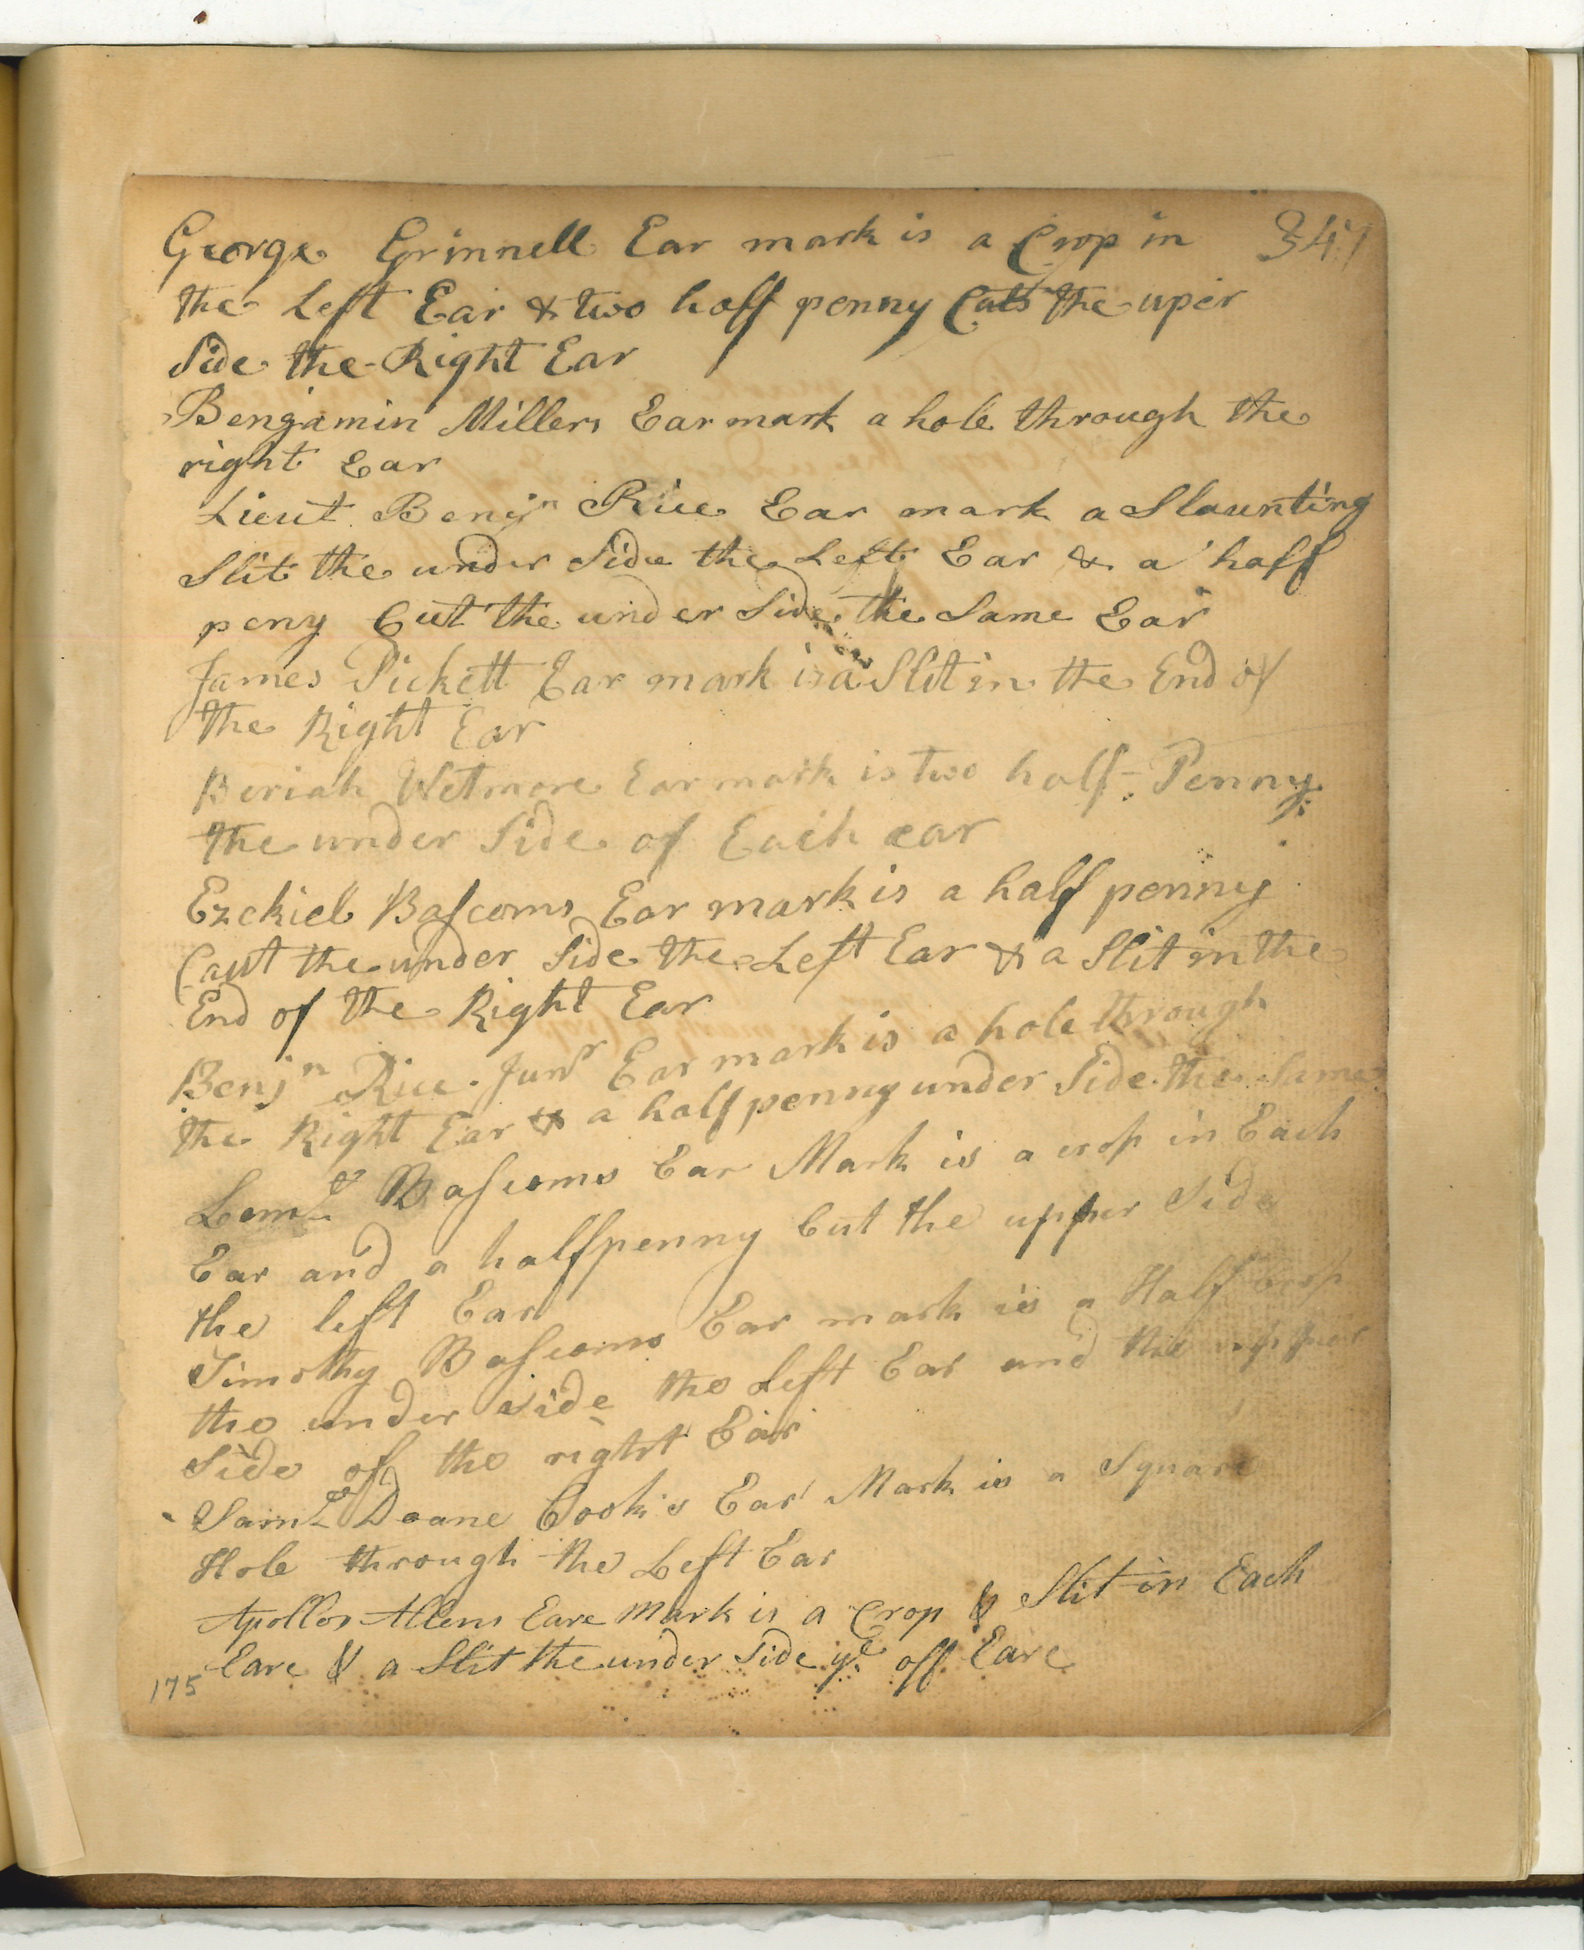 George Grinnell Ear mark is a Crop in 347
the Left Ear & two haff penny Cuts the uper
Side the Right Ear
Bengamin Millers Ear mark a hole through the
right Ear
Lieut Benjn Rice Ear mark a Slaunting
Slit the under Side the Left Ear & a haff
peny Cut the under Side the Same Ear
James Pickett Ear mark is a Slit in the End of
the Right Ear
Beriah Wetmore Ear mark is two half-Penny
the under Side of Each ear
Ezekiel Bascoms Ear mark is a half penny
Caut the under Side the Left Ear & a Slit in the
End of the Right Ear
Benjn Rice Junr Ear mark is a hole through
the Right Ear & a half penny under Side the Same
Leml Bascoms Ear Mark is a crop in Each
Ear and a halfpenny Cut the upper Side
the left Ear
Timothy Bascoms Ear mark is a Half Crop
the under Side the Left Ear and the upper
Side of the right Ear
Saml Doane Cook's Ear Mark is a Square
Hole through the Left Ear
Apollos Allens Eare Mark is a Crop & Slit in Each
Eare & a Slit the under Side ye off Eare
175